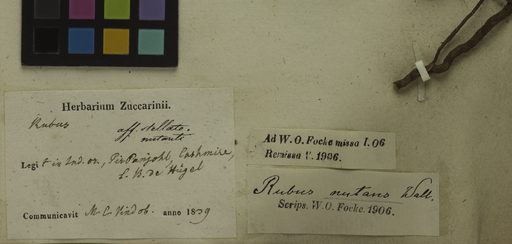 Herbarium Zuccarinii.
Rubus
aff. stellato.
nutanti
Legi in Ind. or., Pir Panjohl, Cashmire,
C. B. de Hügel
Communicavit M. C. Vindob. anno 1839
Ad W. O. Focke missa I. 06
Remissa V. 1906.
Rubus nutans Wall.
Scrips. W. O. Focke. 1906.